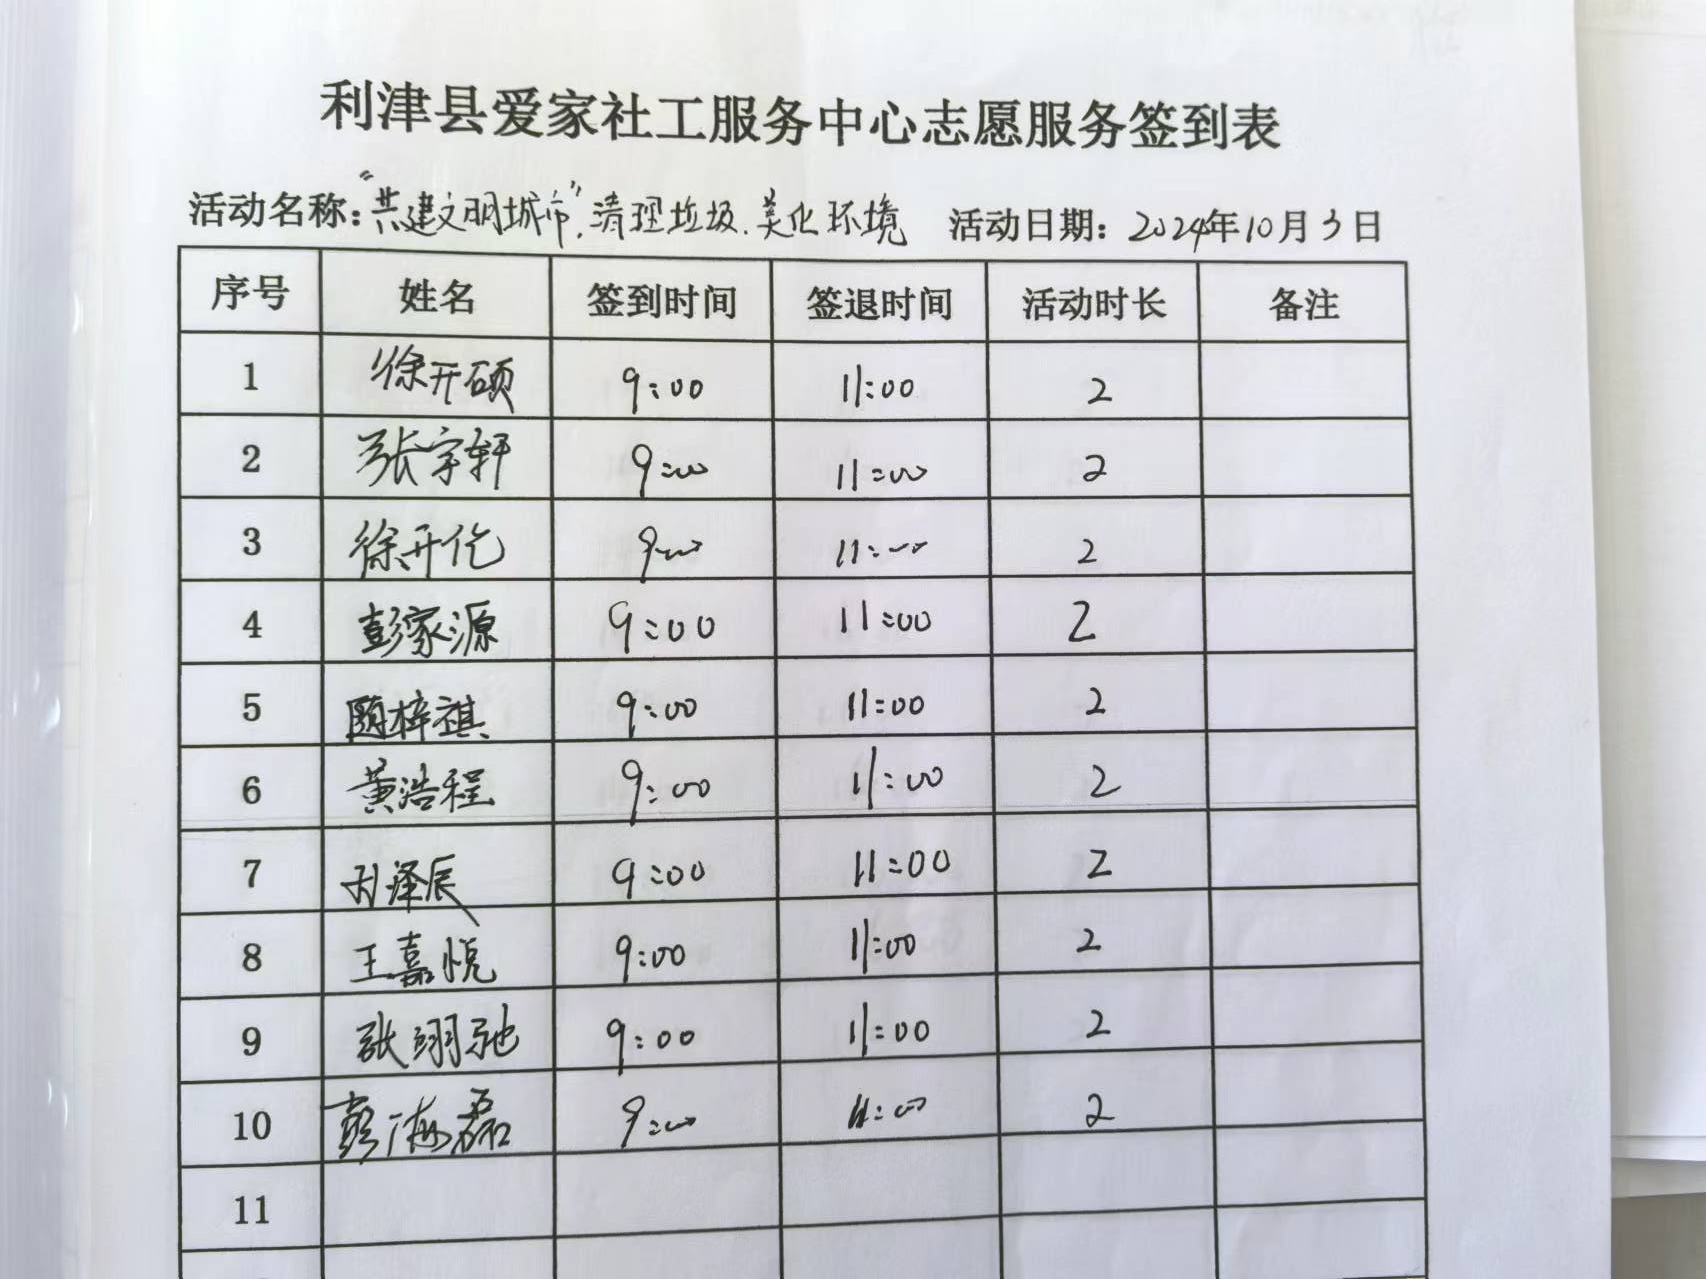 利津县爱家社工服务中心志愿服务签到表
活动名称：“共建文明城市”.清理垃圾.美化环境 活动日期：2024年10月3日
序号 姓名 签到时间 签退时间 活动时长 备注
1 徐开硕 9:00 11:00 2
2 张宇轩 9:00 11:00 2
3 徐开伦 9:00 11:00 2
4 彭家源 9:00 11:00 2
5 顾梓祺 9:00 11:00 2
6 黄浩程 9:00 11:00 2
7 泽辰 9:00 11:00 2
8 王嘉悦 9:00 11:00 2
9 张翊驰 9:00 11:00 2
10 彭海磊 9:00 11:00 2
11